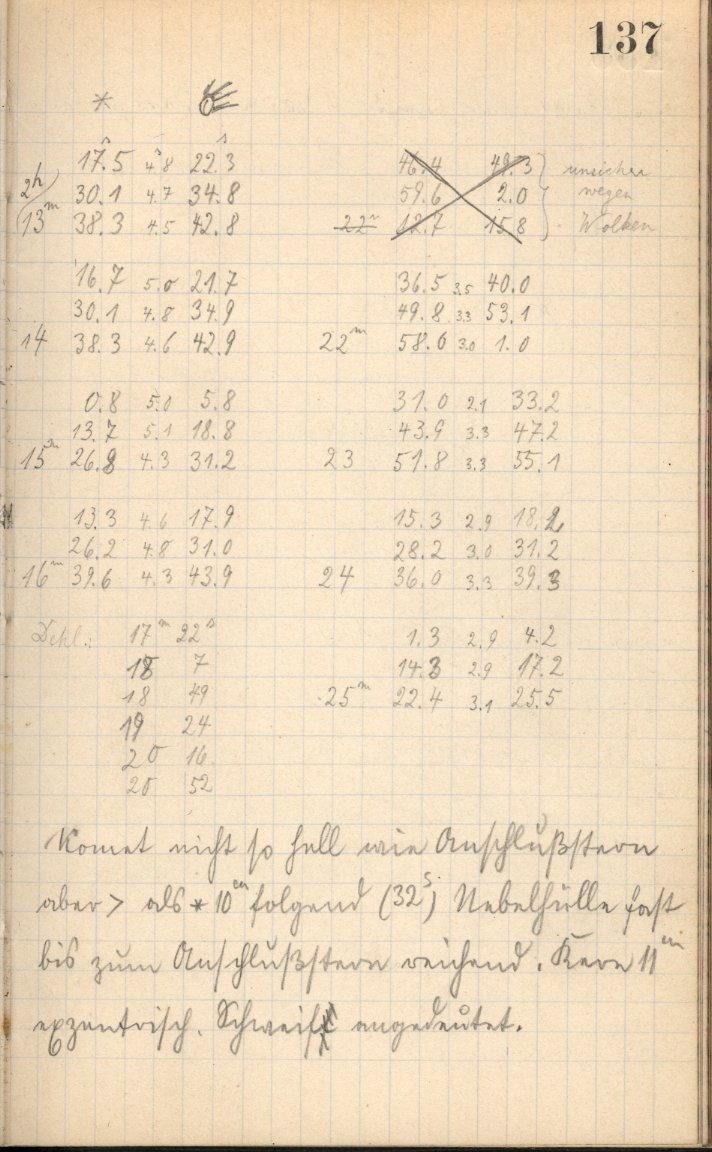 137
*
17.5 4.8 22.3 46.4 49.3 unsicher
2h 30.1 4.7 34.8 59.6 2.0 wegen
13m 38.3 4.5 42.8 22m 12.7 15.8 Wolken
16.7 5.0 21.7 36.5 3.5 40.0
30.1 4.8 34.9 49.8 3.3 53.1
14 38.3 4.6 42.9 22m 58.0 3.0 1.0
0.8 5.0 5.8 31.0 2.1 33.2
13.7 5.1 18.8 43.9 3.3 47.2
15m 26.8 4.3 31.2 23 51.8 3.3 55.1
13.3 4.6 17.9 15.3 2.9 18.2
26.2 4.8 31.0 28.2 3.0 31.2
16m 39.6 4.3 43.9 24 36.0 3.3 39.3
Dekl.: 17m 22s 1.3 2.9 4.2
18 7 14.3 2.9 17.2
18 49 25m 22.4 3.1 25.5
19 24
20 16
20 52
Komet nicht so hell wie Anschlußstern
aber > als * 10m folgend (32s) Nebelhülle fast
bis zum Anschlußstern reichend. Kern 11m
exzentrisch. Schweif angedeutet.